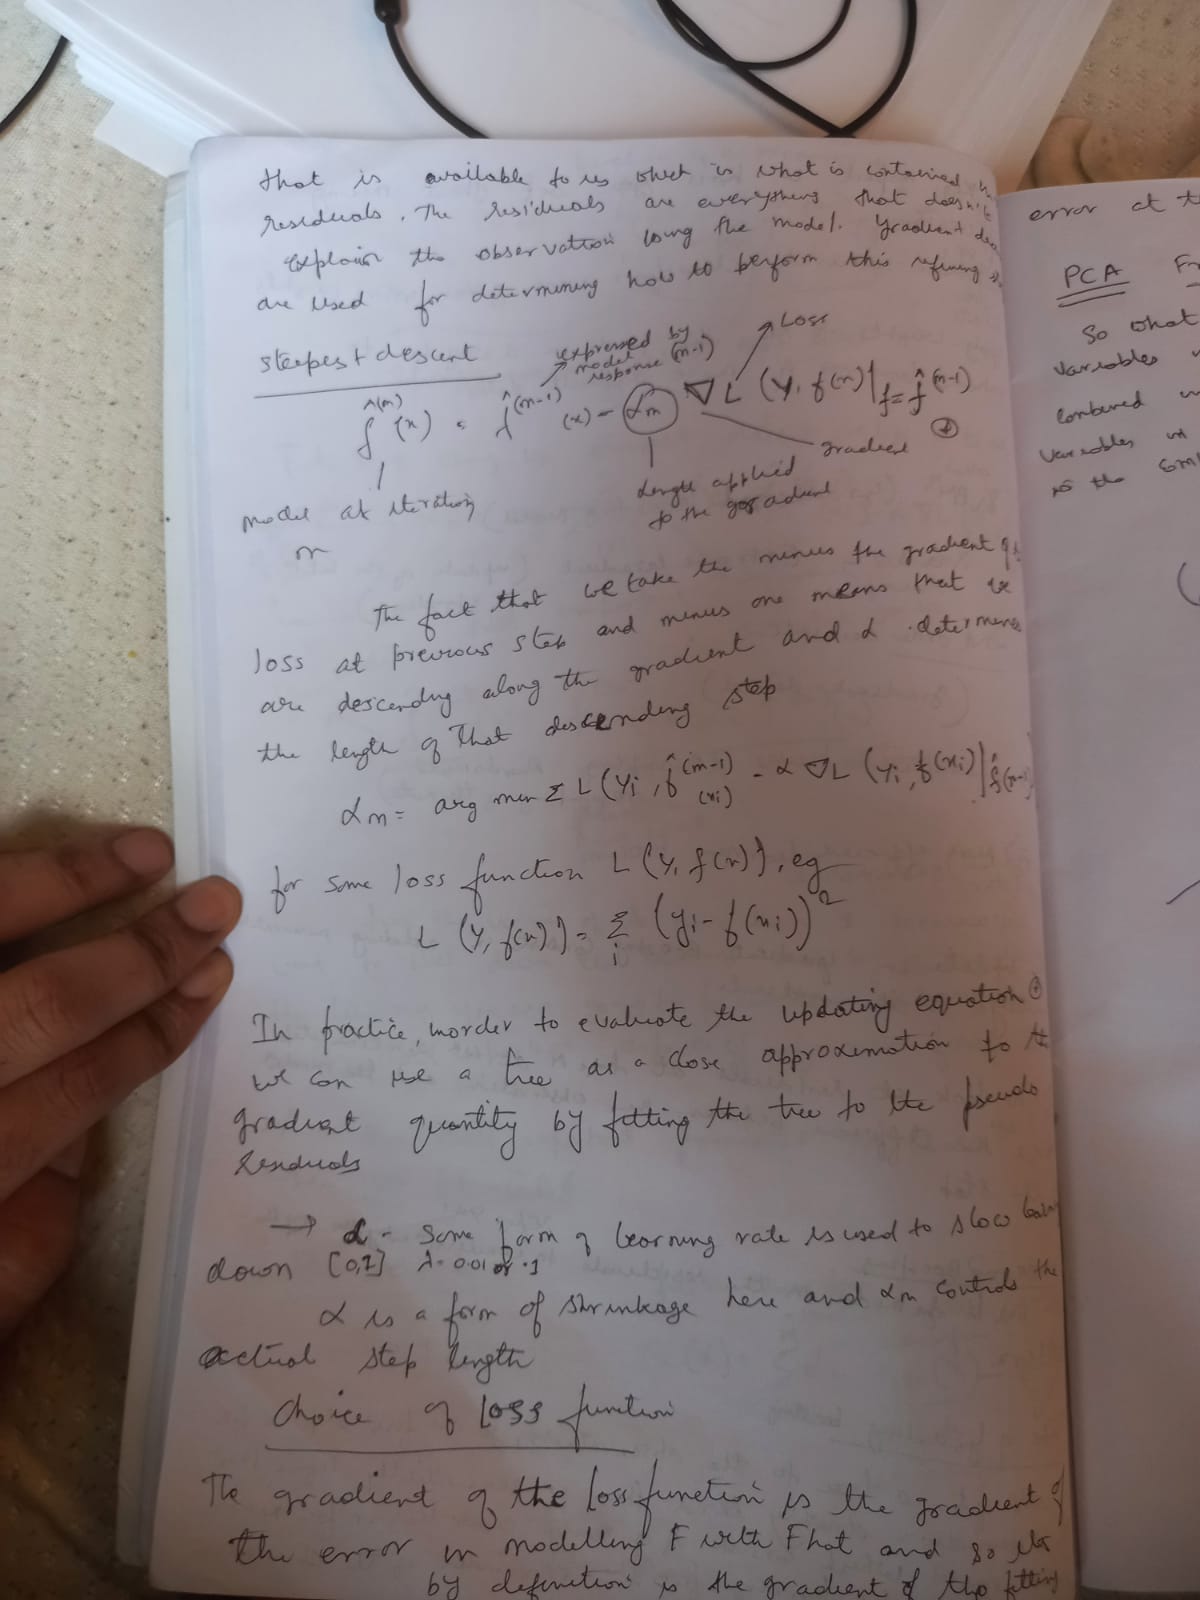 that is available to us which is what is contained in
residuals. The residuals are everything that doesn't
explain the observation using the model. Gradient
are used for determining how to perform this refining
steepest descent
expressed by
model
response (m-1)
Loss
f̂^(m) (x) = f̂^(m-1) (x) - αm ∇ L (y, f(x) | f = f̂^(m-1)
gradient
model at iteration
m
length applied
to the gradient
The fact that we take the minus the gradient of
loss at previous step and minus one means that we
are descending along the gradient and α determines
the length of that descending step
αm = arg min Σ L (yi, f̂^(m-1) (xi) - α ∇L (yi, f(xi) | f̂(m-1)
for some loss function L (y, f(x)), eg
L (y, f(x)) = Σ i (yi - f(xi))²
In practice, inorder to evaluate the updating equation
we can use a tree as a close approximation to the
gradient quantity by fitting the tree to the pseudo
residuals
→ α - some form of learning rate is used to slow
down [0,1] λ = 0.01 or .1
α is a form of shrinkage here and αm controls the
actual step length
Choice of loss function
The gradient of the loss function is the gradient of
the error in modelling F with Fhat and so
by definition is the gradient of the fitting
error at
PCA
So what
Variables
combined
variables
to the